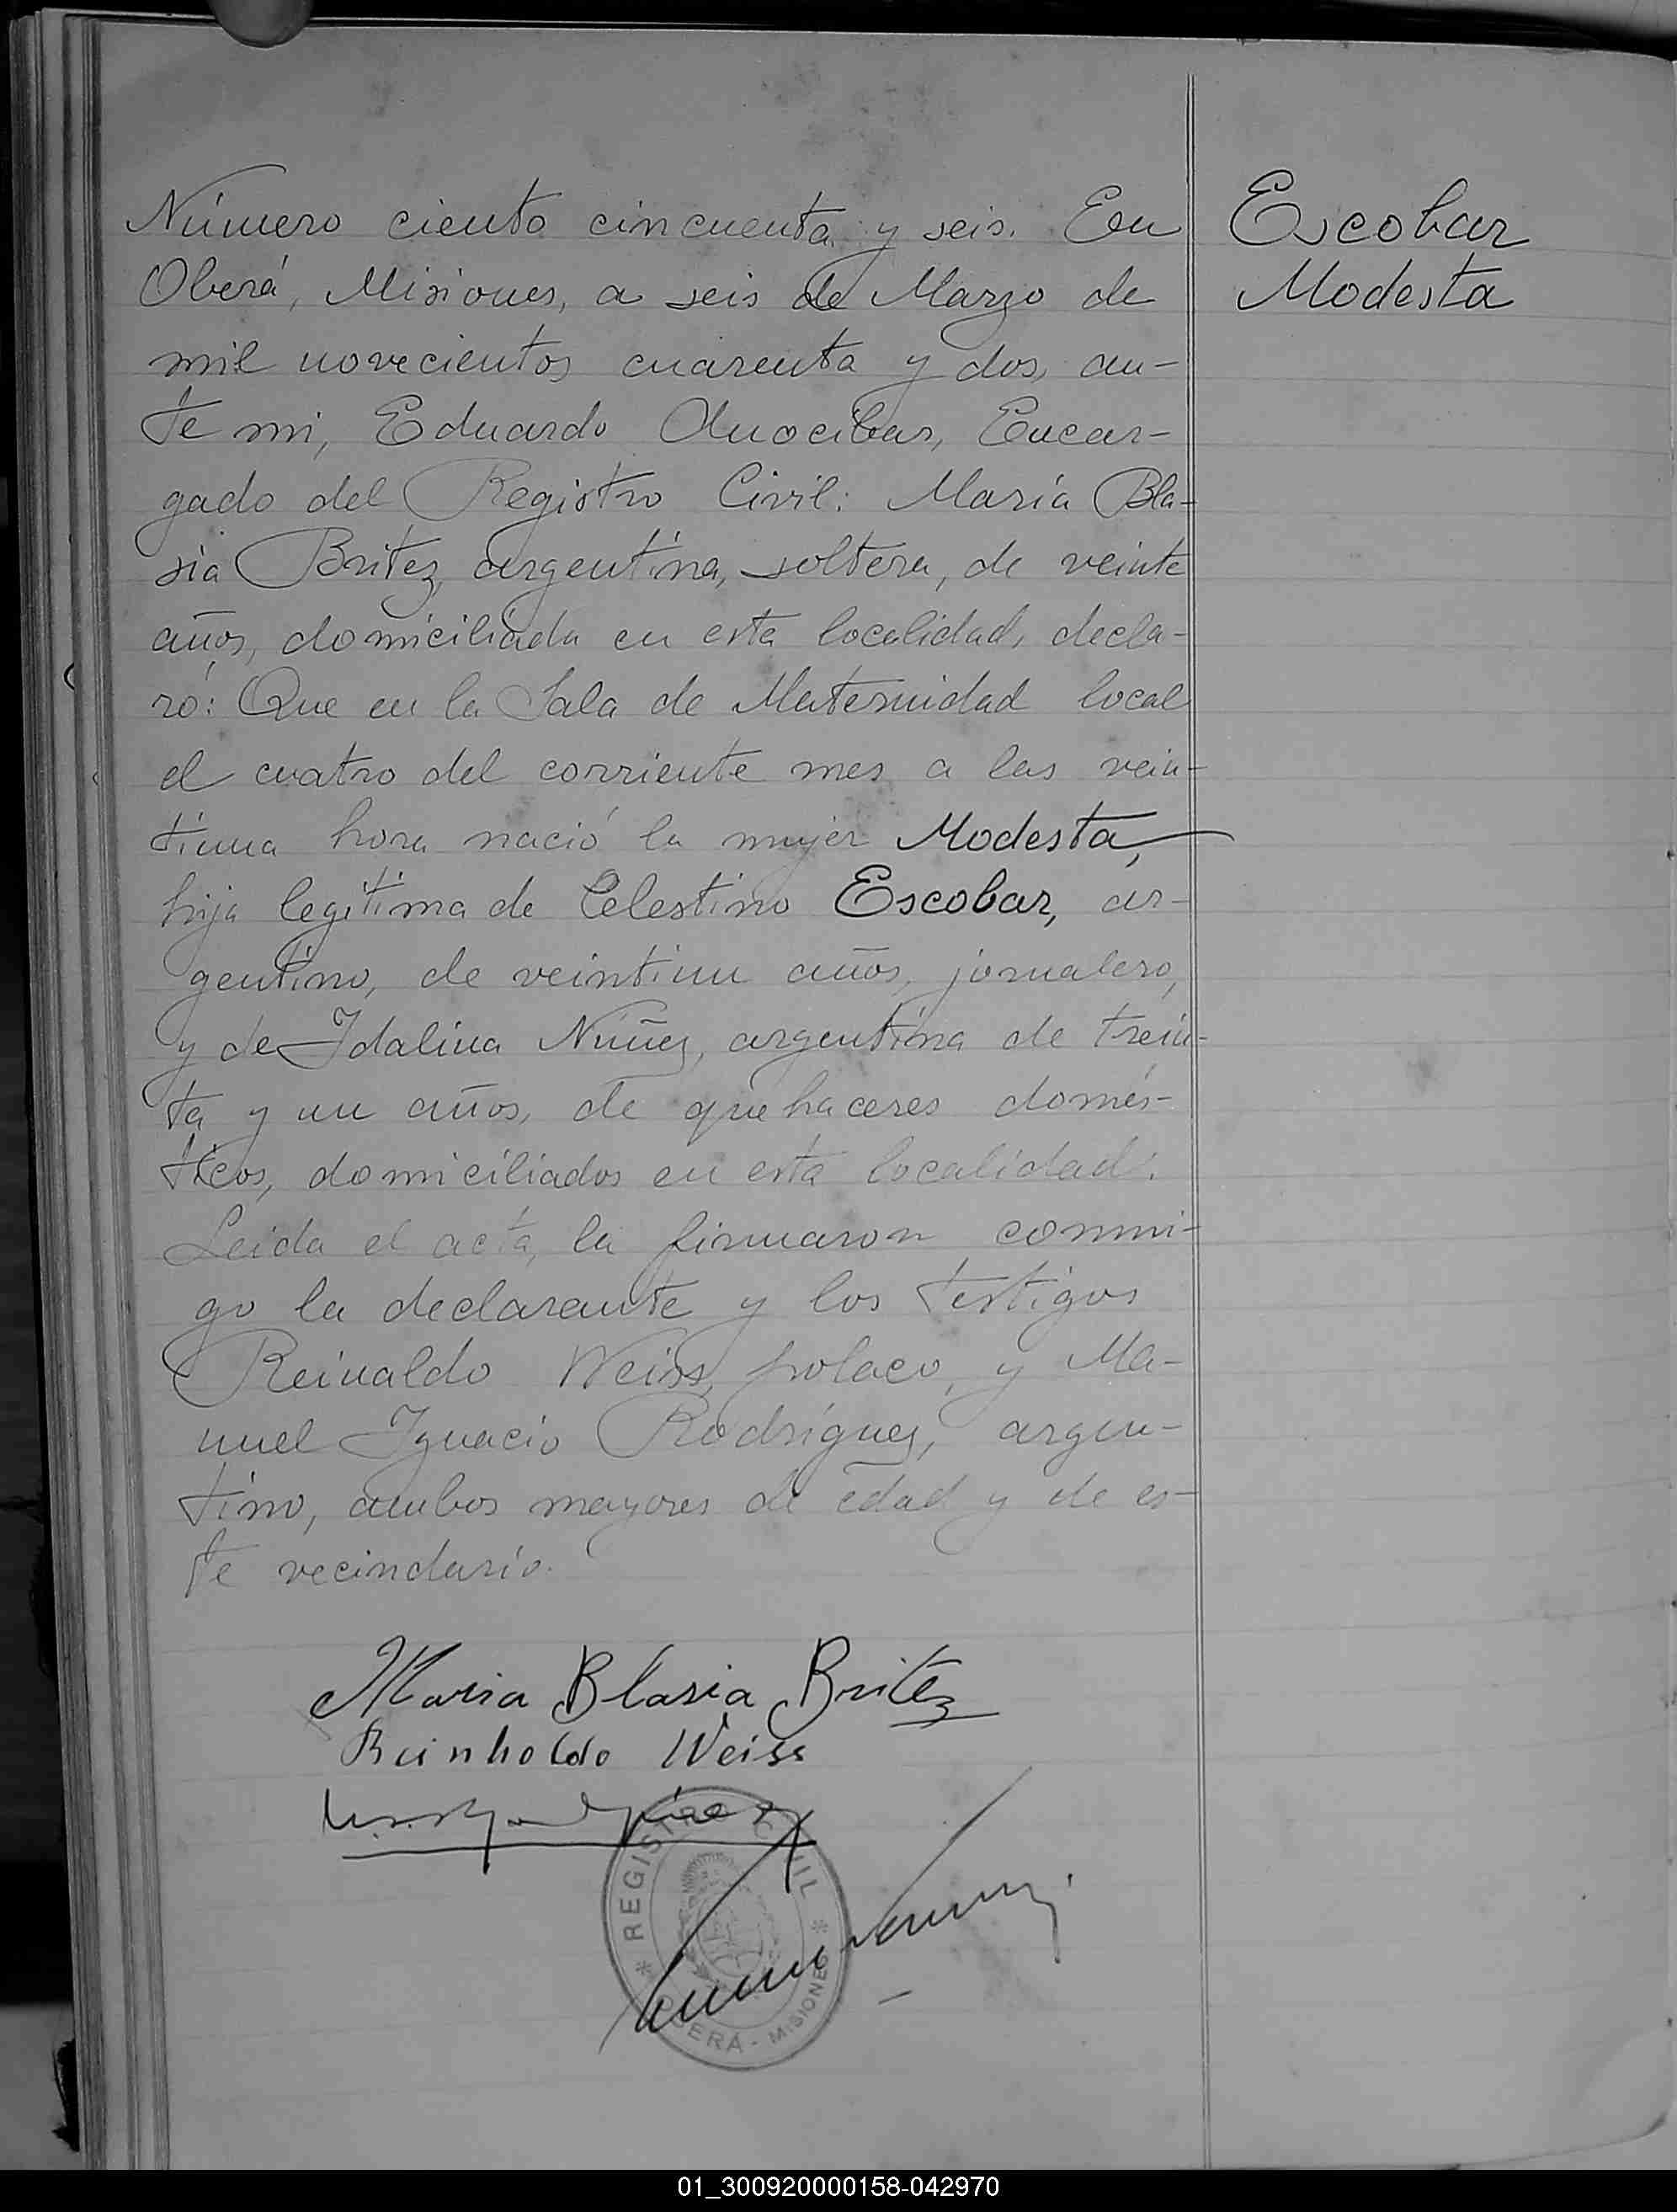 Número ciento cincuenta y seis. En
Oberá, Misiones, a seis de Marzo de
mil novecientos cuarenta y dos, an-
te mi, Eduardo Anocibar, Encar-
gado del Registro Civil: María Bla-
sia Britez, argentina, soltera, de veinte
años, domiciliada en esta localidad, decla-
ró: Que en la Sala de Maternidad local
el cuatro del corriente mes a las vein-
tiuna hora nació la mujer Modesta,
hija legítima de Celestino Escobar, ar-
gentino, de veintiun años, jornalero,
y de Idalina Núñez, argentina de trein-
ta y un años, de quehaceres domés-
ticos, domiciliados en esta localidad.
Leida el acta, la firmaron conmi-
go la declarante y los testigos
Reinaldo Weiss, polaco, y Ma-
nuel Ignacio Rodríguez, argen-
tino, ambos mayores de edad y de es-
te vecindario.
Escobar
Modesta
Maria Blasia Britez
Reinholdo Weiss
REGISTRO CIVIL
OBERÁ - MISIONES
01_300920000158-042970